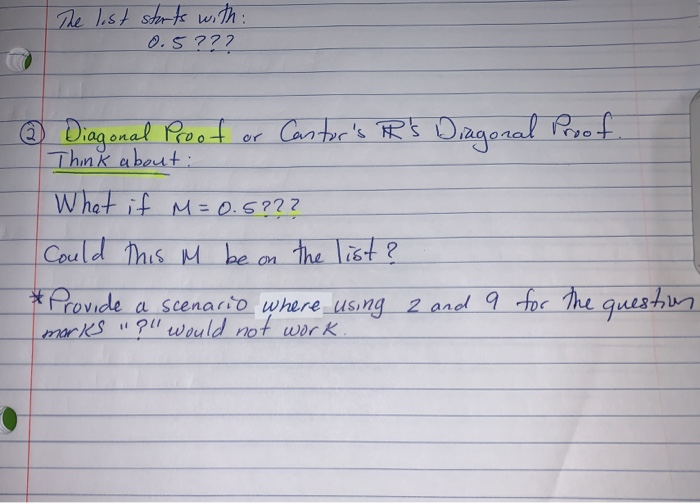 The list starts with:
0.5???
② Diagonal Proof or Cantor's ℝ's Diagonal Proof.
Think about:
What if M = 0.5???
Could this M be on the list?
* Provide a scenario where using 2 and 9 for the question
marks "?" would not work.